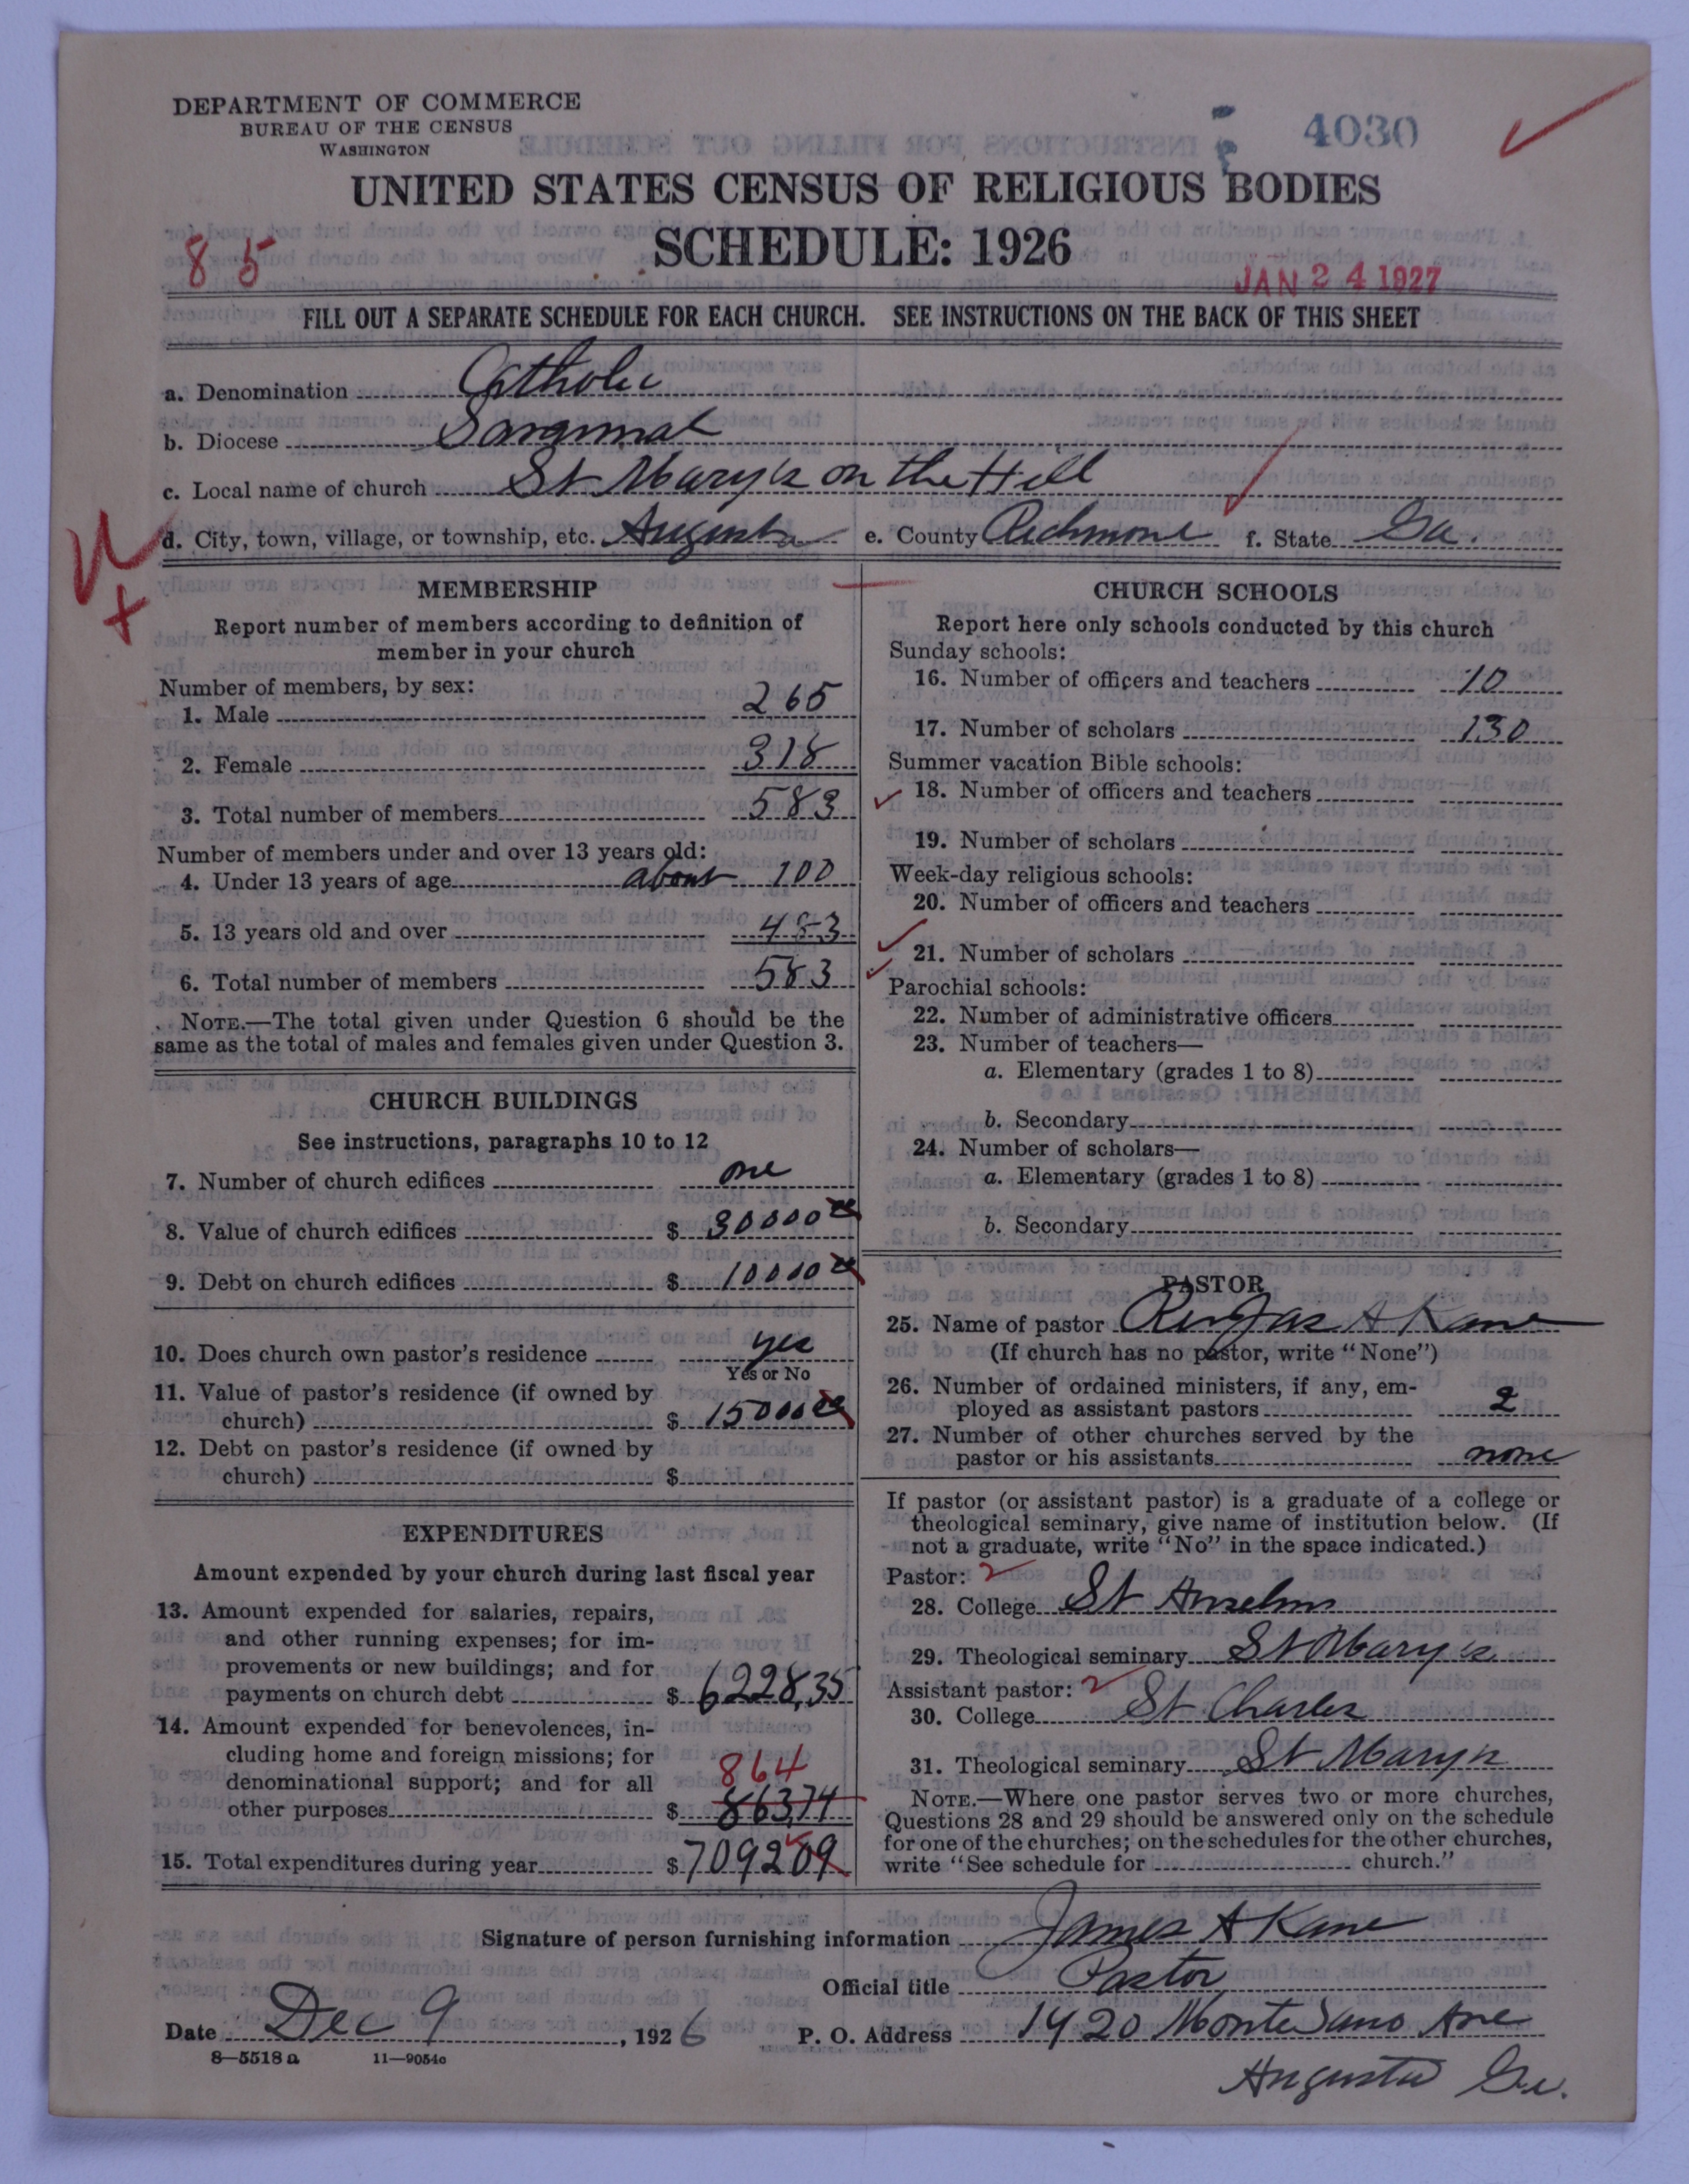 DEPARTMENT OF COMMERCE
BUREAU OF THE CENSUS
WASHINGTON
4030
UNITED STATES CENSUS OF RELIGIOUS BODIES
SCHEDULE: 1926
85
JAN 24 1927
FILL OUT A SEPARATE SCHEDULE FOR EACH CHURCH. SEE INSTRUCTIONS ON THE BACK OF THIS SHEET
a. Denomination Catholic
b. Diocese Savannah
c. Local name of church St Mary's on the Hill
d. City, town, village, or township, etc. Augusta e. County Richmond f. State Ga.
MEMBERSHIP
Report number of members according to definition of
member in your church
Number of members, by sex:
1. Male 265
2. Female 318
3. Total number of members 583
Number of members under and over 13 years old:
4. Under 13 years of age about 100
5. 13 years old and over 483
6. Total number of members 583
NOTE.—The total given under Question 6 should be the
same as the total of males and females given under Question 3.
CHURCH BUILDINGS
See instructions, paragraphs 10 to 12
7. Number of church edifices one
8. Value of church edifices $ 30000
9. Debt on church edifices $ 10000
10. Does church own pastor's residence yes
Yes or No
11. Value of pastor's residence (if owned by
church) $ 15000
12. Debt on pastor's residence (if owned by
church) $
EXPENDITURES
Amount expended by your church during last fiscal year
13. Amount expended for salaries, repairs,
and other running expenses; for im-
provements or new buildings; and for
payments on church debt $ 6228,35
14. Amount expended for benevolences, in-
cluding home and foreign missions; for
denominational support; and for all 864
other purposes $ 863,74
15. Total expenditures during year $ 709209
CHURCH SCHOOLS
Report here only schools conducted by this church
Sunday schools:
16. Number of officers and teachers 10
17. Number of scholars 130
Summer vacation Bible schools:
18. Number of officers and teachers
19. Number of scholars
Week-day religious schools:
20. Number of officers and teachers
21. Number of scholars
Parochial schools:
22. Number of administrative officers
23. Number of teachers—
a. Elementary (grades 1 to 8)
b. Secondary
24. Number of scholars—
a. Elementary (grades 1 to 8)
b. Secondary
PASTOR
25. Name of pastor A Kane
(If church has no pastor, write "None")
26. Number of ordained ministers, if any, em-
ployed as assistant pastors 2
27. Number of other churches served by the
pastor or his assistants none
If pastor (or assistant pastor) is a graduate of a college or
theological seminary, give name of institution below. (If
not a graduate, write "No" in the space indicated.)
Pastor: 2
28. College St Anselms
29. Theological seminary St Mary's
Assistant pastor: 2
30. College St Charles
31. Theological seminary St Mary's
NOTE.—Where one pastor serves two or more churches,
Questions 28 and 29 should be answered only on the schedule
for one of the churches; on the schedules for the other churches,
write "See schedule for church."
Signature of person furnishing information James A Kane
Official title Pastor
Date Dec 9, 1926 P. O. Address 1420 Monte Sano Ave
8—5518 a 11—9054c
Augusta Ga.